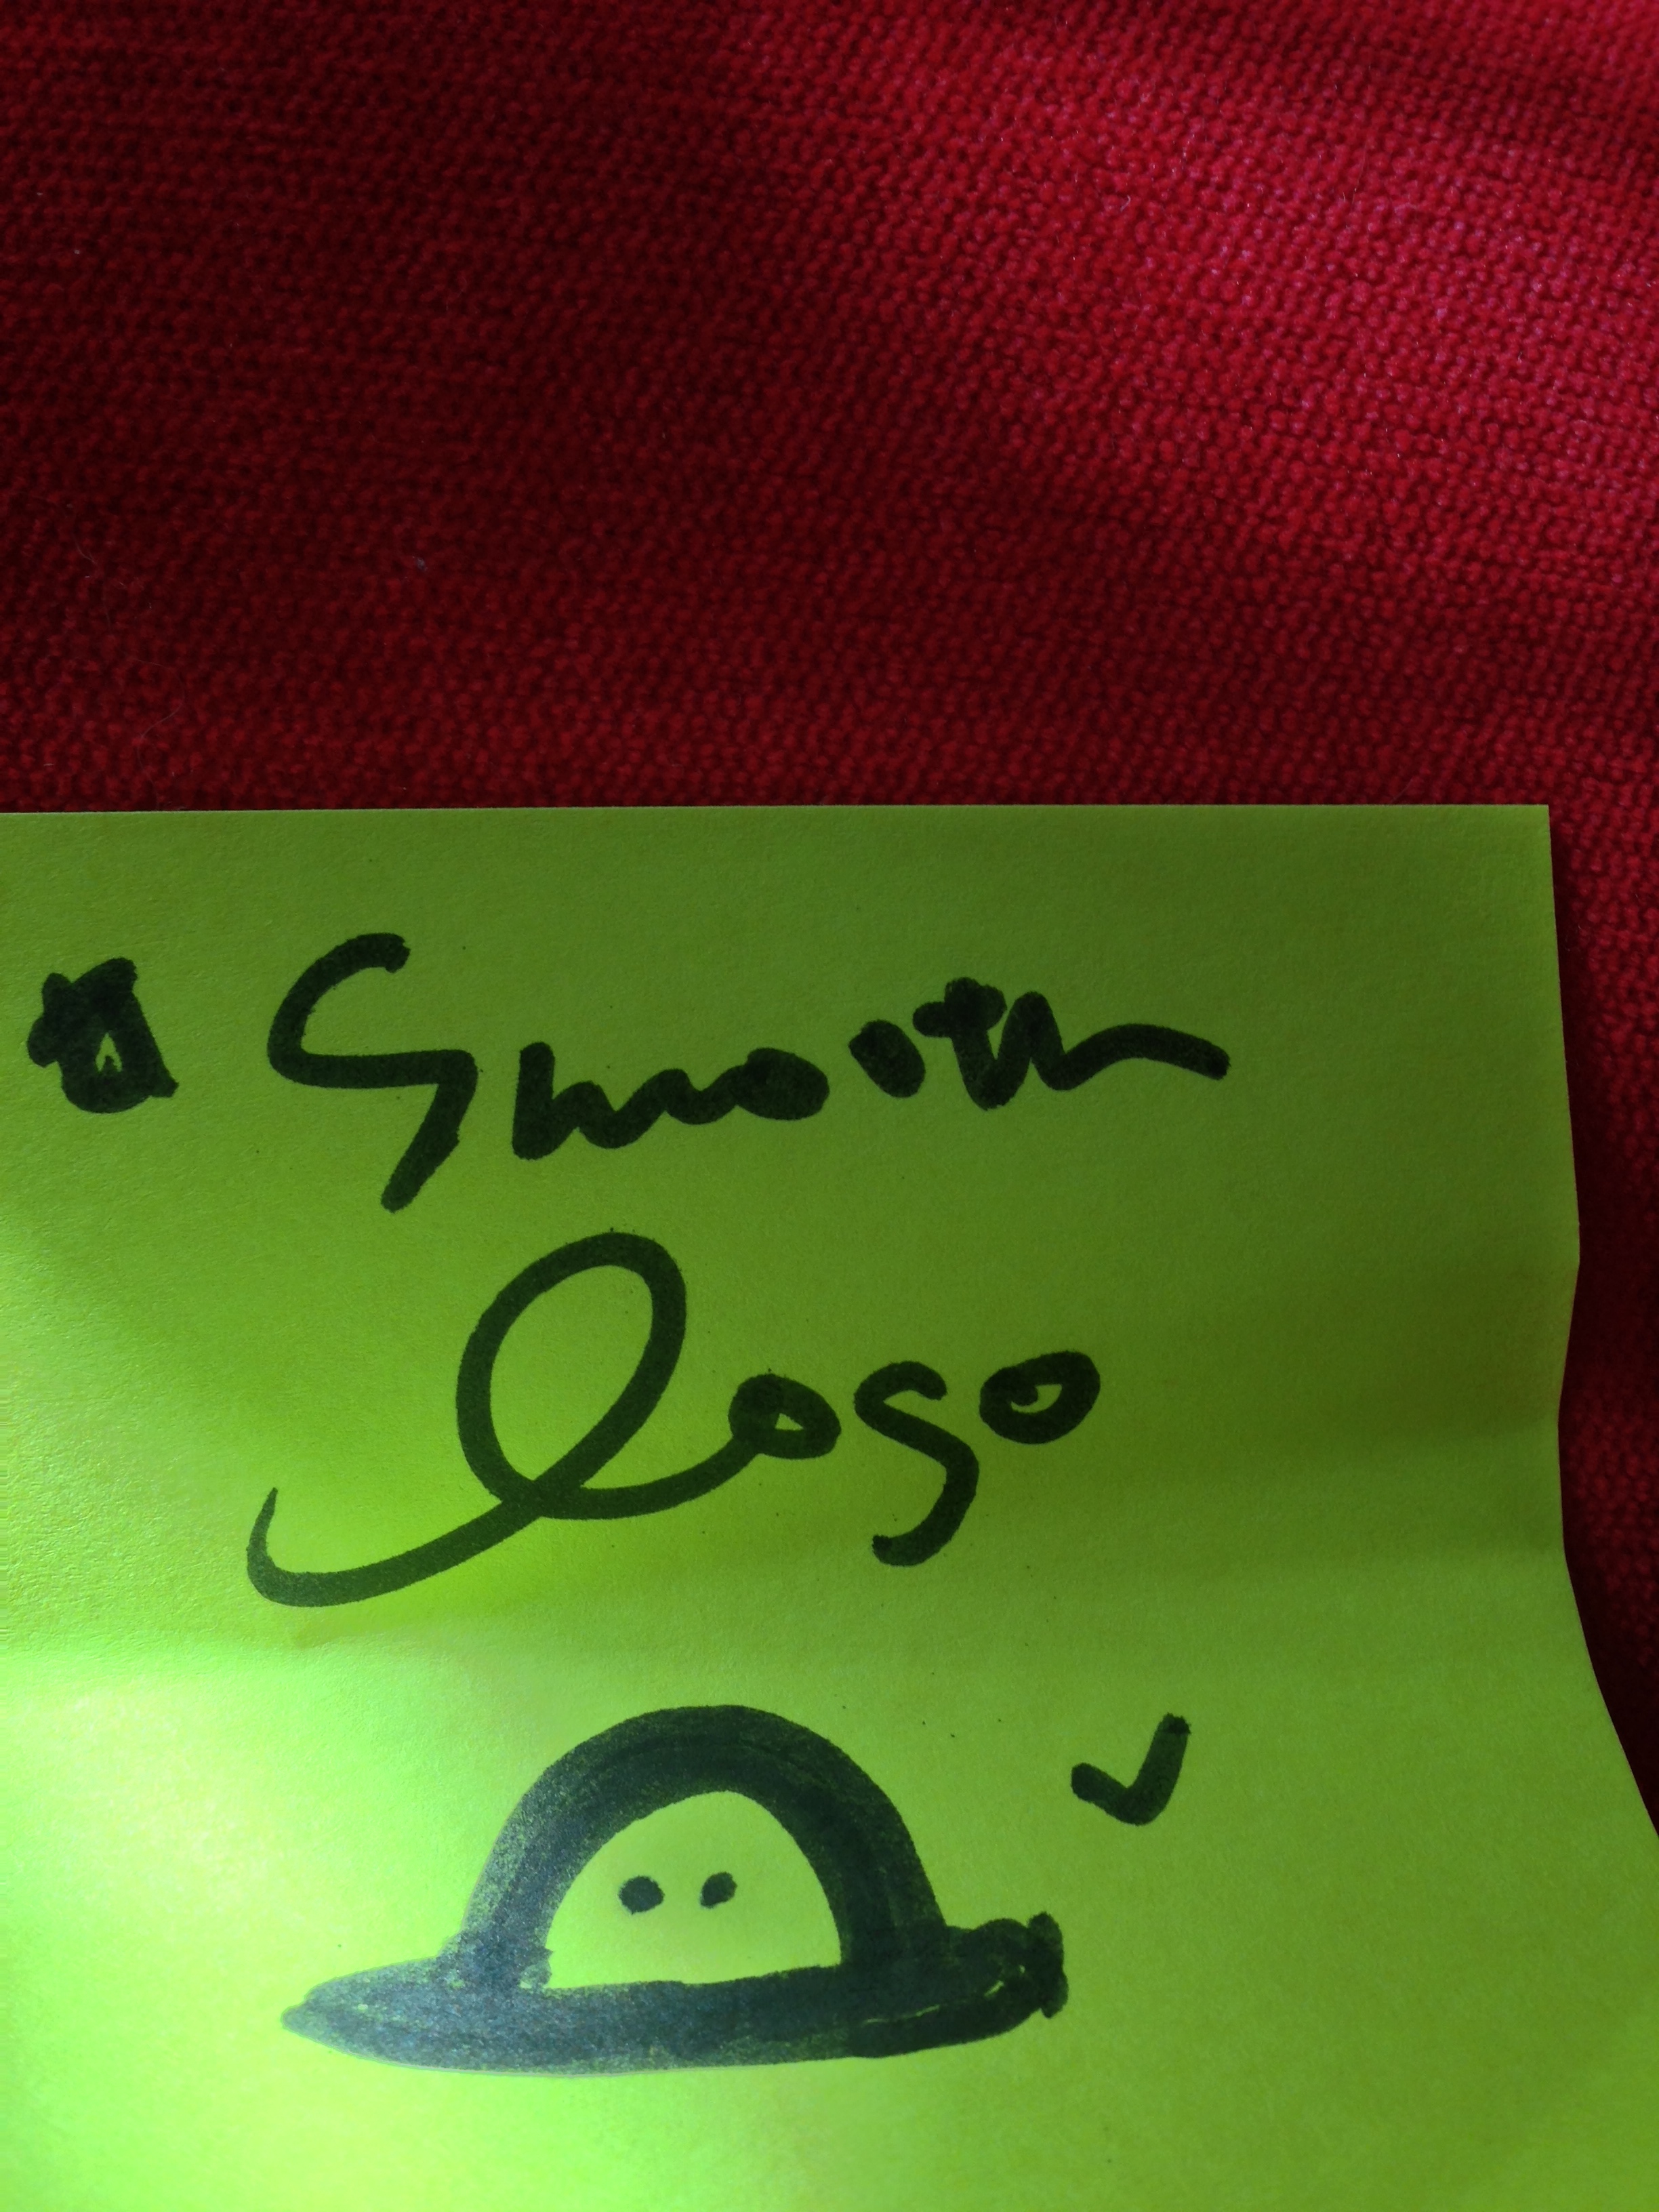 Smooth
logo